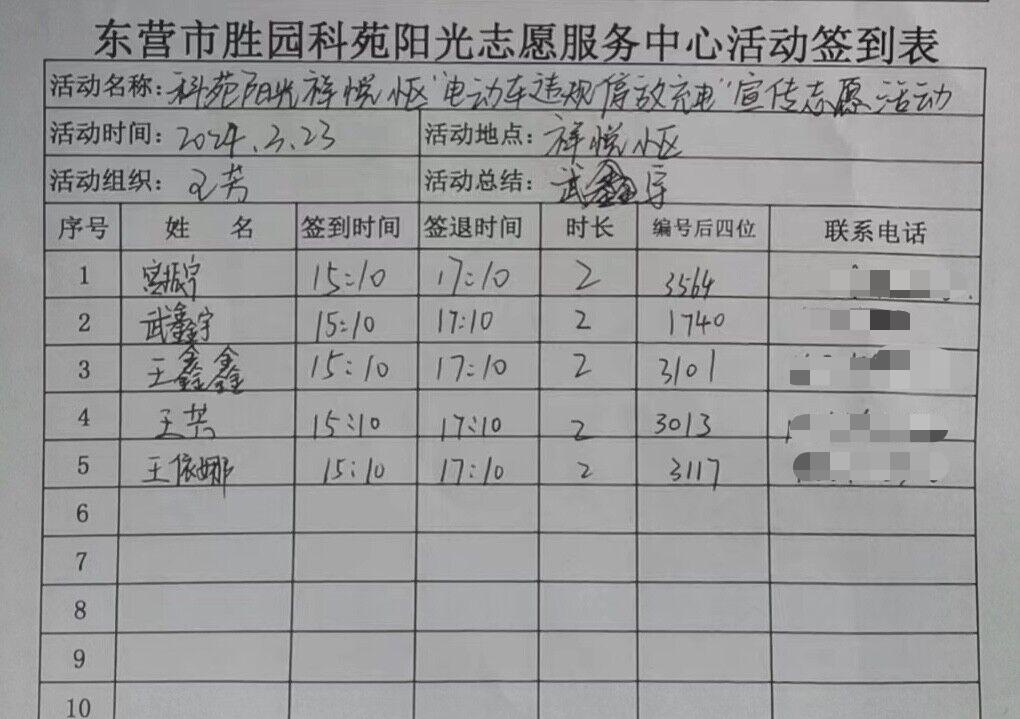 东营市胜园科苑阳光志愿服务中心活动签到表
活动名称：科苑阳光祥悦小区"电动车违规停放充电"宣传志愿活动
活动时间：2024.3.23 活动地点：祥悦小区
活动组织：王芳 活动总结：武鑫宇
序号 姓 名 签到时间 签退时间 时长 编号后四位 联系电话
1 宫振宁 15:10 17:10 2 3564
2 武鑫宇 15:10 17:10 2 1740
3 王鑫鑫 15:10 17:10 2 3101
4 王芳 15:10 17:10 2 3013
5 王依娜 15:10 17:10 2 3117
6
7
8
9
10